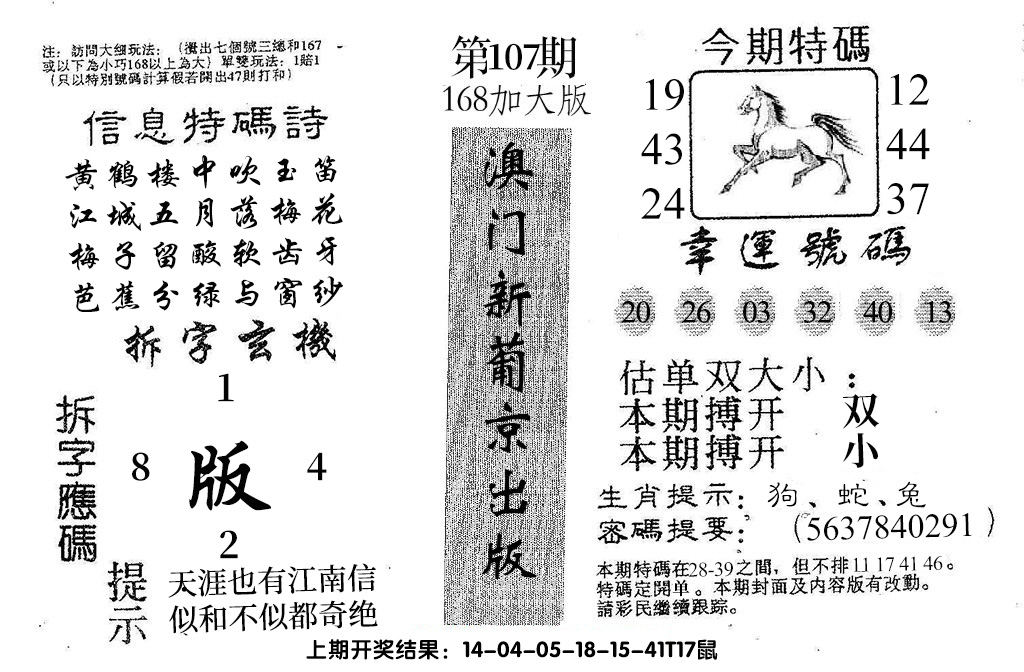 注：訪問大细玩法：（攪出七個號三總和167
或以下為小巧168以上為大）單雙玩法：1賠1
（只以特別號碼計算假若開出47則打和）
信息特碼詩
黄鹤楼中吹玉笛
江城五月落梅花
梅子留酸软齿牙
芭蕉分绿与窗纱
拆字玄機
拆字應碼
1
8 版 4
2
提示
天涯也有江南信
似和不似都奇绝
第107期
168加大版
澳门新葡京出版
今期特碼
19 12
43 44
24 37
幸運號碼
20 26 03 32 40 13
估单双大小：
本期搏开 双
本期搏开 小
生肖提示：狗、蛇、兔
密碼提要：（5637840291）
本期特碼在28-39之間，但不排11 17 41 46。
特碼定開单。本期封面及内容版有改動。
請彩民繼續跟踪。
上期开奖结果：14-04-05-18-15-41T17鼠